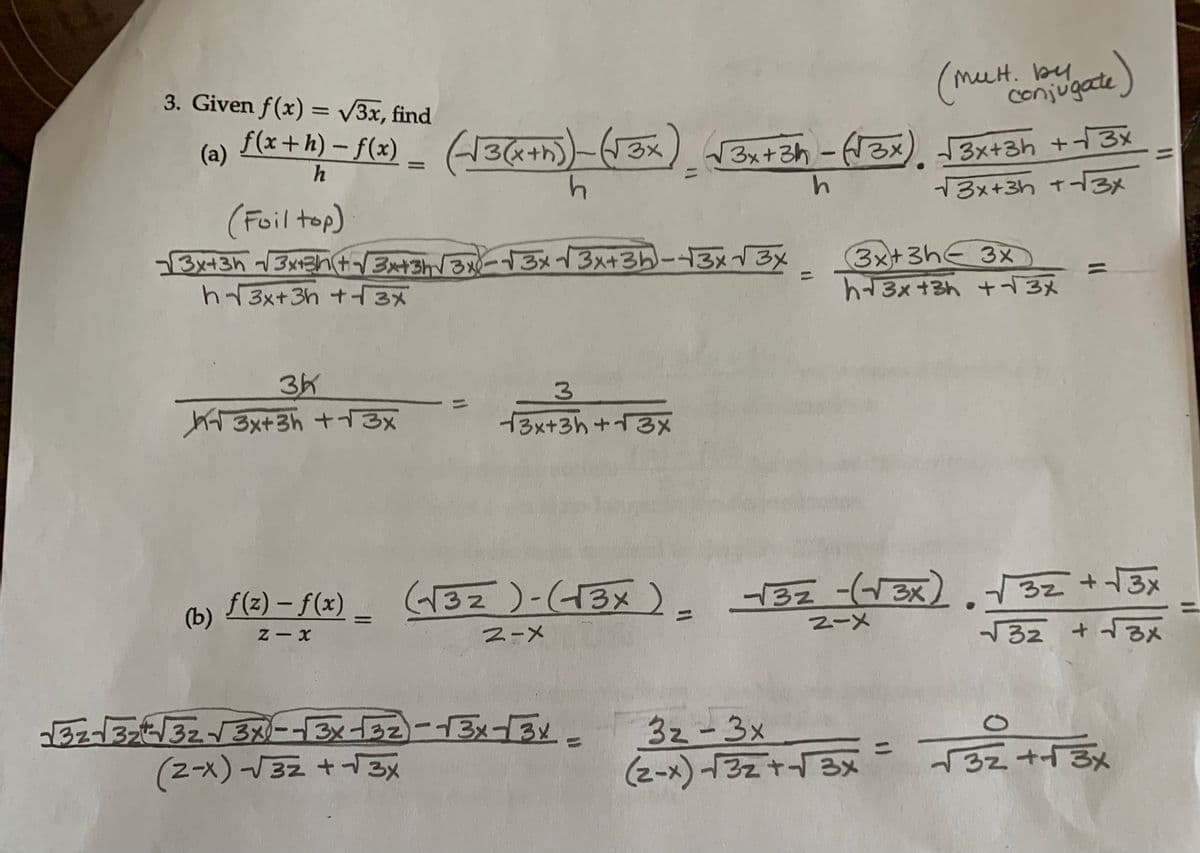 (mult. by conjugate)
3. Given f(x) = √3x, find
(a) f(x+h) − f(x) / h = (√3(x+h)) − (√3x) / h = √3x+3h − (√3x) / h · √3x+3h + √3x / √3x+3h + √3x =
(Foil top)
√3x+3h √3x+3h (+√3x+3h √3x − √3x √3x+3h) − √3x √3x / h √3x+3h + √3x = 3x + 3h − 3x / h √3x+3h + √3x =
3h / h √3x+3h + √3x = 3 / √3x+3h + √3x
(b) f(z) − f(x) / z − x = (√3z) − (√3x) / z−x = √3z − (√3x) / z−x · √3z + √3x / √3z + √3x =
√3z √3z + √3z √3x − √3x √3z) − √3x √3x / (z−x) √3z + √3x = 3z − 3x / (z−x) √3z + √3x = 0 / √3z + √3x